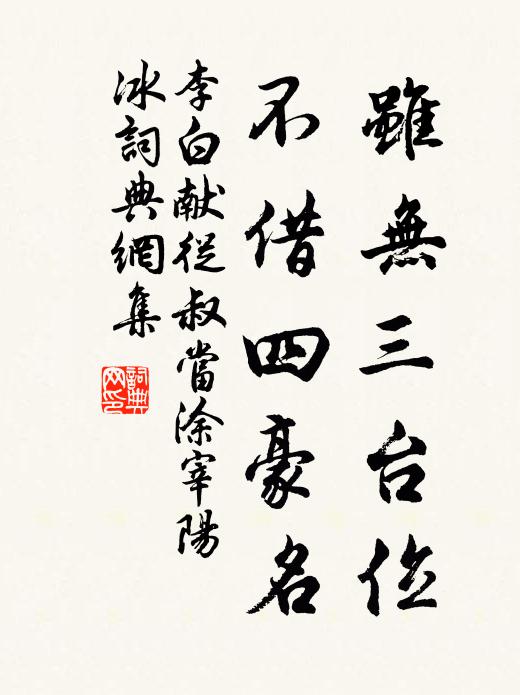 雖無三台位
不借四豪名
李白献從叔當涂宰陽
冰詞典網集
詞典
网印